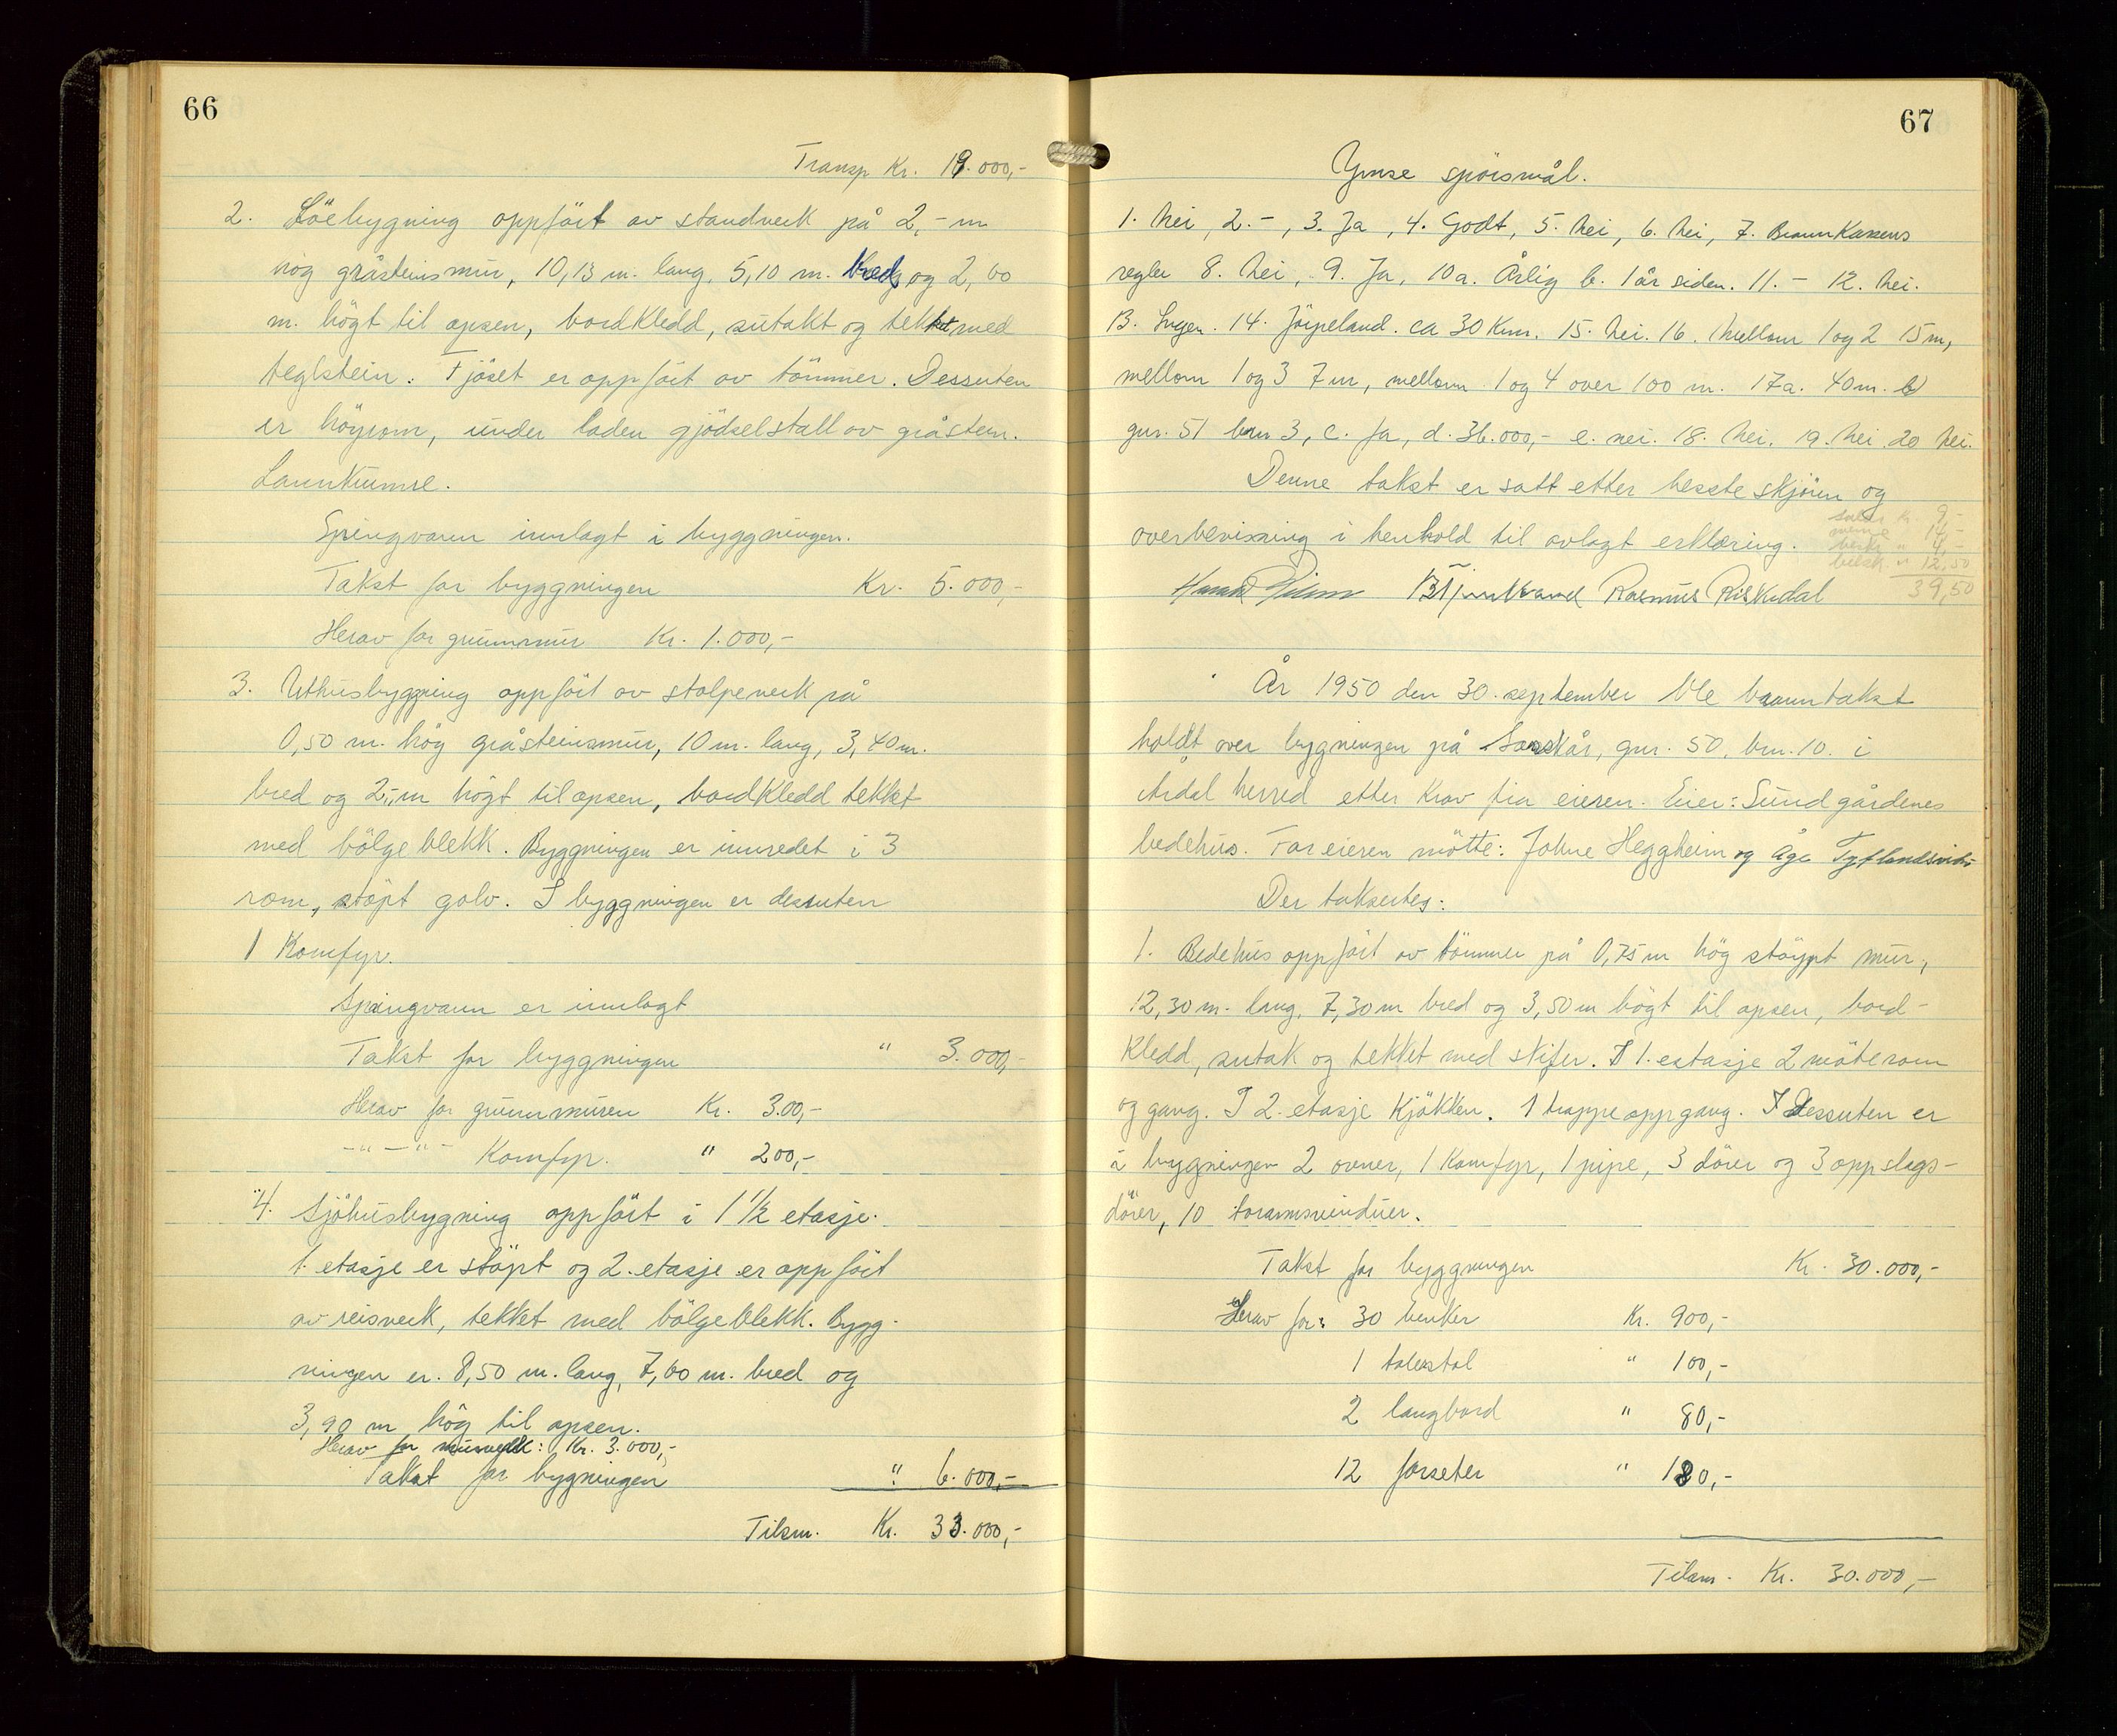 66
Transp Kr. 19.000,-
2. Löebygning oppført av standverk på 2,- m
høg gråsteinsmur, 10,13 m. lang, 5,10 m. bred og 2,60
m. högt til opsen, bordkledd, sutakt og tekket med
teglstein. Fjöset er oppfört av tömmer. Dessuten
er höyrom, under laden gjödselstall av gråstein.
Lannkumme.
Springvann innlagt i byggningen.
Takst for byggningen Kr. 5.000,-
Herav for grunnmur Kr. 1.000,-
3. Uthusbyggning oppfört av stolpeverk på
0,50 m. hög gråsteinsmur, 10 m. lang, 3,40 m.
bred og 2,- m högt til opsen, bordkledd tekket
med bölgeblekk. Byggningen er innredet i 3
rom, stöpt golv. I byggningen er dessuten
1 Komfyr.
Springvann er innlagt
Takst for byggningen " 3.000,-
Herav for grunnmuren Kr. 3.00,-
-"- -"- Komfyr. " 200,-
4. Sjöhusbygning oppfört i 1 1/2 etasje.
1. etasje er stöpt og 2. etasje er oppfört
av reisverk, tekket med bölgeblekk. Bygg-
ningen er. 8,50 m. lang, 7,60 m. bred og
3,90 m hög til opsen.
Herav for murverk: Kr. 3.000,-
Takst for bygningen " 6.000,-
Tilsm. Kr. 33.000,-
67
Ymse spörsmål.
1. Nei, 2. -, 3. Ja, 4. Godt, 5. Nei, 6. Nei, 7. Brannkassens
regler 8. Nei, 9. Ja, 10a. Årlig b. 1 år siden. 11. - 12. Nei.
13. Ingen. 14. Jörpeland. ca 30 Km. 15. Nei. 16. Mellom 1 og 2 15 m,
mellom 1 og 3 7 m, mellom 1 og 4 over 100 m. 17a. 40 m. b)
gnr. 51 bnr 3, c. Ja, d. 36.000,- e. nei. 18. Nei. 19. Nei 20 Nei.
Denne takst er satt etter beste skjönn og
overbevisning i henhold til avlagt erklæring.
9,-
14,-
4,-
12,50
39,50
Rasmus Riskedal
År 1950 den 30. september ble branntakst
holdt over bygningen på , gnr. 50, bnr. 10. i
Årdal herred etter krav fra eieren. Eier: Sundgårdenes
bedehus. For eieren mötte: Johne Heggheim og Åge
Der taksertes:
1. Bedehus oppfört av tömmer på 0,75 m hög stöypt mur,
12,30 m. lang, 7,30 m bred og 3,50 m högt til opsen, bord-
kledd, sutak og tekket med skifer. I 1. estasje 2 möterom
og gang. I 2. etasje Kjökken. 1 trappeoppgang. Dessuten er
i bygningen 2 ovner, 1 Komfyr, 1 pipe, 3 dörer og 3 oppslags-
dörer, 10 toramsvinduer.
Takst for byggningen Kr. 30.000,-
Herav for: 30 benker Kr. 900,-
1 talerstol " 100,-
2 langbord " 80,-
12 forseter " 180,-
Tilsm. Kr. 30.000,-